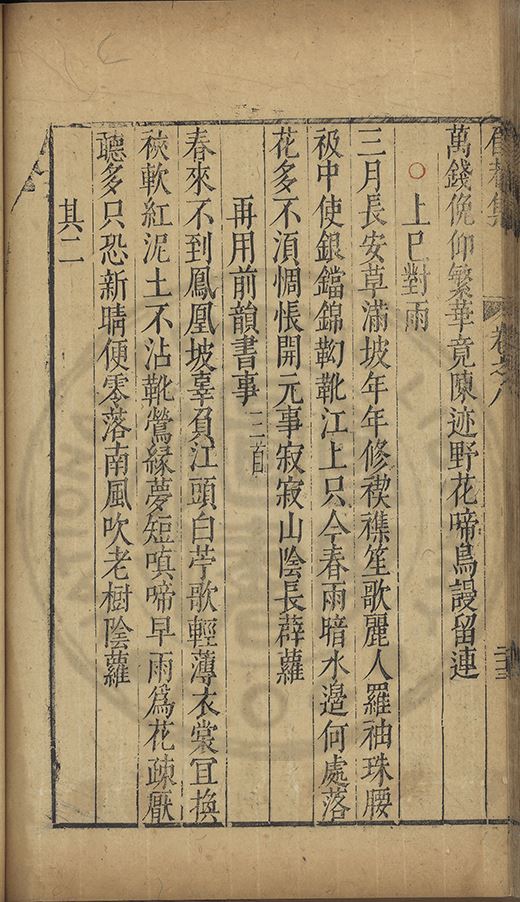 卷之八
二十三
萬錢俛仰繁華竟陳迹野花啼鳥謾留連
上巳對雨
三月長安草滿坡年年修禊襍笙歌麗人羅袖珠腰
衱中使銀鐺錦靿靴江上只今春雨暗水邉何處落
花多不湏惆悵開元事寂寂山陰長薜蘿
再用前韻書事三首
春來不到鳳凰坡辜負江頭白苧歌輕薄衣裳冝換
裌軟紅泥土不沾靴鶯緣夢短嗔啼早雨爲花疎厭
聽多只恐新晴便零落南風吹老樹陰蘿
其二